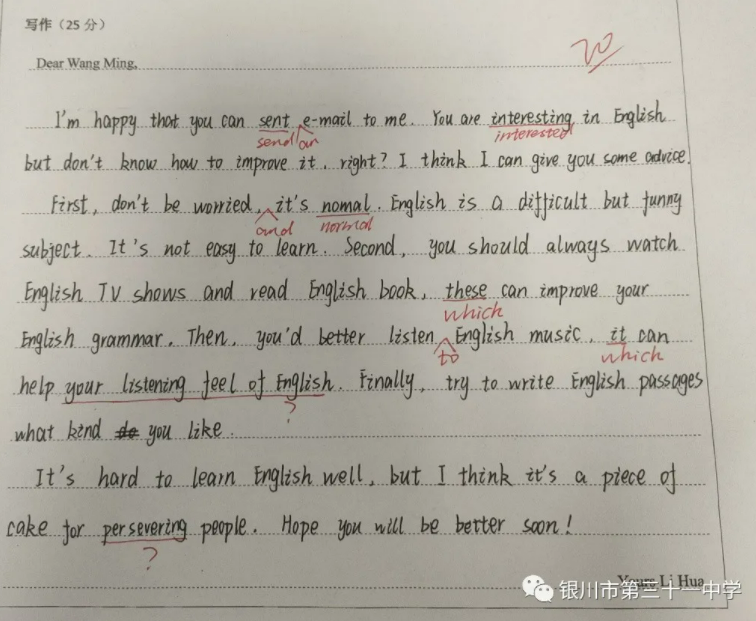 写作（25 分）
20
Dear Wang Ming,
I'm happy that you can sent e-mail to me. You are interesting in English
send an interested
but don't know how to improve it, right? I think I can give you some advice.
First, don't be worried, it's nomal. English is a difficult but funny
and normal
subject. It's not easy to learn. Second, you should always watch
English TV shows and read English book, these can improve your
which
English grammar. Then, you'd better listen English music, it can
to which
help your listening feel of English. Finally, try to write English passages
?
what kind do you like.
It's hard to learn English well, but I think it's a piece of
cake for persevering people. Hope you will be better soon!
?
Yours Li Hua
银川市第三十一中学